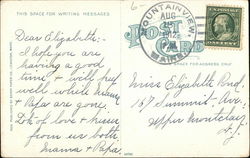 THIS SPACE FOR WRITING MESSAGES
Dear Elizabeth:-
I hope you are
having a good
time & will feel
well while Mama
& Papa are gone.
Lots of love & kisses
from us both
Mama & Papa
MOUNTAINVIEW,
AUG
MAINE
POST CARD
SPACE FOR ADDRESS ONLY
Miss Elizabeth
187 Summit Ave.
Upper Montclair
N. J.